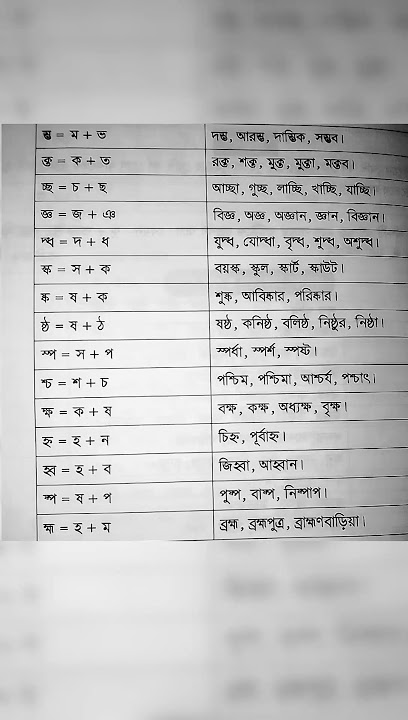 ম্ভ = ম + ভ দম্ভ, আরম্ভ, দাম্ভিক, সম্ভব।
ক্ত = ক + ত রক্ত, শক্ত, মুক্ত, মুক্তা, মক্তব।
চ্ছ = চ + ছ আচ্ছা, গুচ্ছ, লাচ্ছি, খাচ্ছি, যাচ্ছি।
জ্ঞ = জ + ঞ বিজ্ঞ, অজ্ঞ, অজ্ঞান, জ্ঞান, বিজ্ঞান।
দ্ধ = দ + ধ যুদ্ধ, যোদ্ধা, বৃদ্ধ, শুদ্ধ, অশুদ্ধ।
স্ক = স + ক বয়স্ক, স্কুল, স্কার্ট, স্কাউট।
ষ্ক = ষ + ক শুষ্ক, আবিষ্কার, পরিষ্কার।
ষ্ঠ = ষ + ঠ ষষ্ঠ, কনিষ্ঠ, বলিষ্ঠ, নিষ্ঠুর, নিষ্ঠা।
স্প = স + প স্পর্ধা, স্পর্শ, স্পষ্ট।
শ্চ = শ + চ পশ্চিম, পশ্চিমা, আশ্চর্য, পশ্চাৎ।
ক্ষ = ক + ষ বক্ষ, কক্ষ, অধ্যক্ষ, বৃক্ষ।
হ্ন = হ + ন চিহ্ন, পূর্বাহ্ন।
হ্ব = হ + ব জিহ্বা, আহ্বান।
ষ্প = ষ + প পুষ্প, বাষ্প, নিষ্পাপ।
হ্ম = হ + ম ব্রহ্ম, ব্রহ্মপুত্র, ব্রাহ্মণবাড়িয়া।